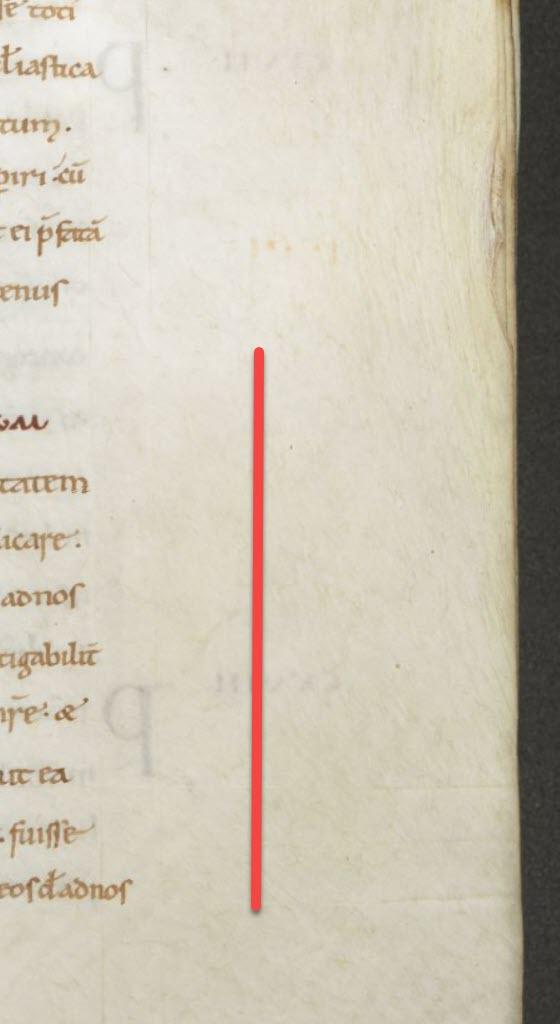 se toti
cl̄iastica
tum.
piri. cū
t ei p̄fatā
enus
tatem
licare:
adnos
tigabilit̄
ir̄e. &
uit ea
. fuisse
eos cl̄ adnos